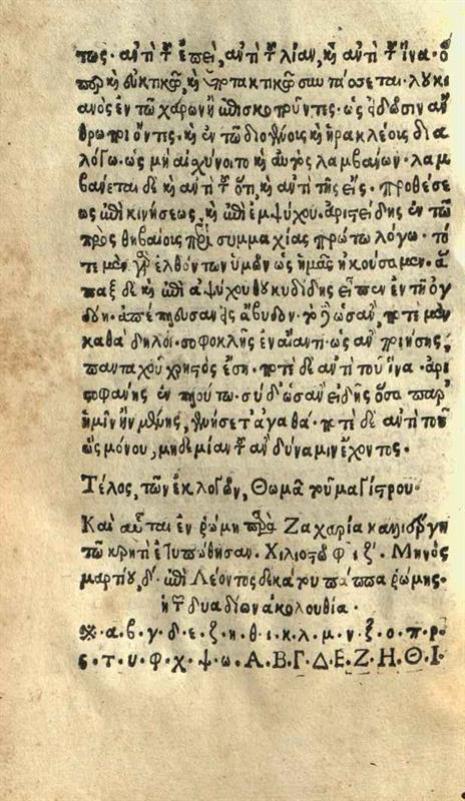 πως· ἀντὶ τοῦ ἐπεὶ, ἀντὶ τοῦ λίαν, καὶ ἀντὶ τοῦ ἵνα· ὅ
περ καὶ εὐκτικῷ, καὶ ὑποτακτικῷ συντάσσεται· λουκι
ανὸς ἐν τῷ χάρων ἢ ἐπισκοποῦντες· ὡς εἰδῶσιν ἄν
θρωποι ὄντες· καὶ ἐν τῷ διογένους καὶ ἡρακλέους δια
λόγῳ· ὡς μὴ αἰσχύνοιτο καὶ αὐτὸς λαμβάνων· λαμ
βάνεται δὲ καὶ ἀντὶ τοῦ ὅτι, καὶ ἀντὶ τῆς εἰς· προθέσε
ως ἐπὶ κινήσεως, καὶ ἐπὶ ἐμψύχου· ἀριστείδης ἐν τῷ
πρὸς θηβαίους περὶ συμμαχίας πρώτῳ λόγῳ· τό
τε μὲν γὰρ ἐλθόντων ὑμῶν ὡς ἡμᾶς ἠκούσαμεν· ἅ
παξ δὲ καὶ ἐπὶ ἀψύχου θουκυδίδης εἶπεν ἐν τῇ ὀγ
δόῃ· ἀπέπλευσαν ἐς ἄβυδον·
καθὰ δηλοῖ· σοφοκλῆς ἐν αἴαντι· ὡς ἂν ποιήσῃς,
πανταχοῦ χρηστὸς ἔσῃ· ποτὲ δὲ ἀντὶ τοῦ ἵνα· ἀρι
στοφάνης ἐν πλούτῳ· σὺ δ' ὡς ἂν εἰδῇς ὅσα παρ'
ἡμῖν ἢν μένῃς, γενήσετ' ἀγαθά· ποτὲ δὲ ἀντὶ τοῦ
ὡς μόνου, μηδεμίαν τοῦ ἂν δύναμιν ἔχοντος·
Τέλος, τῶν ἐκλογῶν, Θωμᾶ τοῦ μαγίστρου·
Καὶ αὗται ἐν ῥώμῃ παρὰ Ζαχαρίᾳ καλλιέργῃ
τῷ κρητὶ ἐτυπώθησαν. Χιλιοστῷ φ' ι ζ'. Μηνὸς
μαρτίου, δ'. ἐπὶ Λέοντος δεκάτου πάππα ῥώμης·
ἡ τῶν δυαδίων ἀκολουθία·
✠· α· β· γ· δ· ε· ζ· η· θ· ι· κ· λ· μ· ν· ξ· ο· π· ρ·
ς· τ· υ· φ· χ· ψ· ω· Α· Β· Γ· Δ· Ε· Ζ· Η· Θ· Ι·